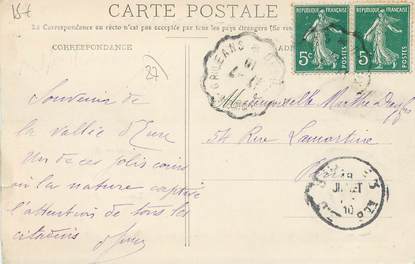 157
CARTE POSTALE
La Correspondance au recto n'est pas acceptée par tous les pays étrangers
CORRESPONDANCE
27
RÉPUBLIQUE FRANÇAISE
RÉPUBLIQUE FRANÇAISE
5c POSTES
5c POSTES
ORLEANS
Souvenir de
la vallée d'Eure
Un de ces jolis coins
où la nature captive
l'attention de tous les
citadins
Mademoiselle Marthe
54 Rue Lamartine
JUILLET
10